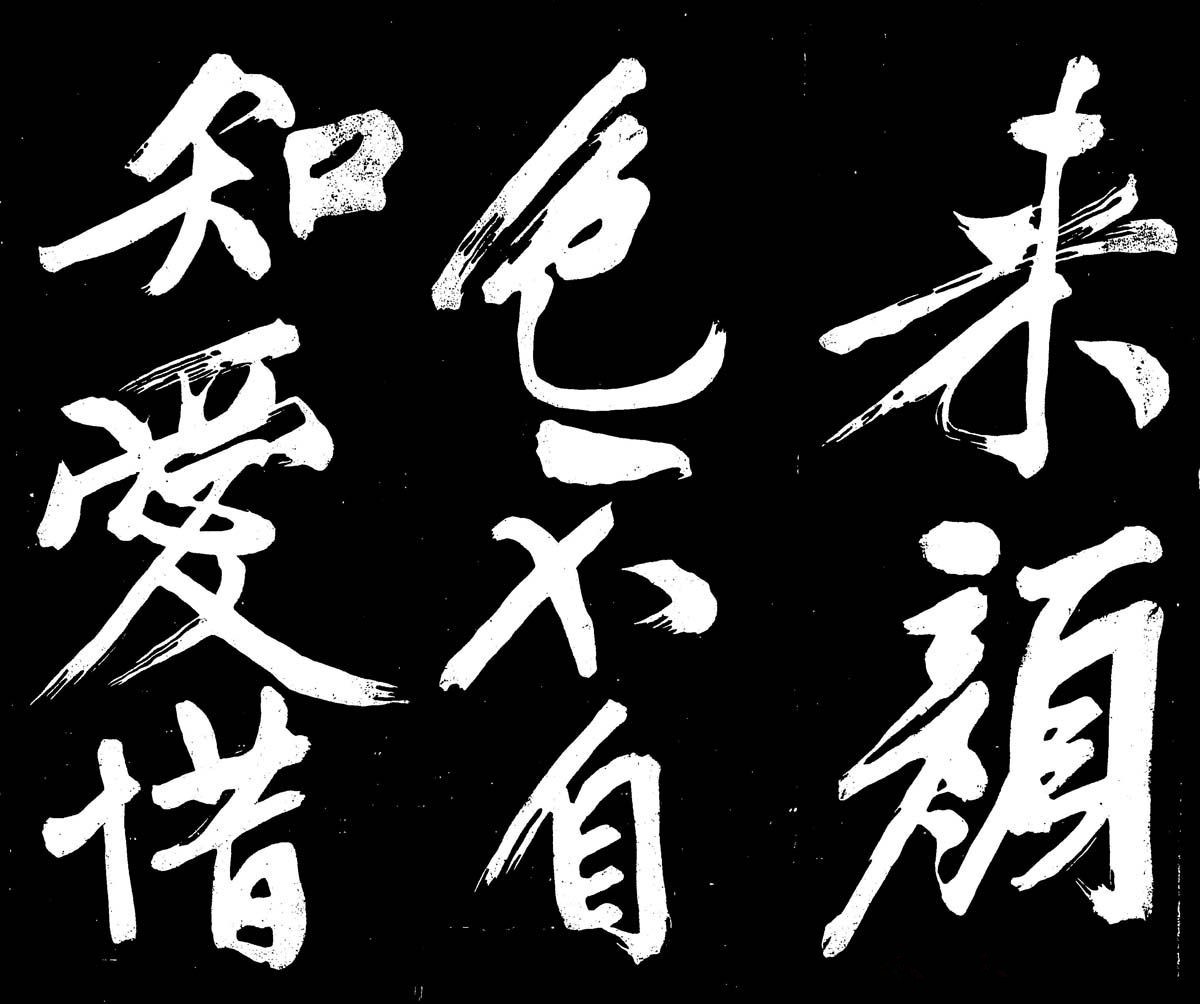 来顔
色不自
知愛惜